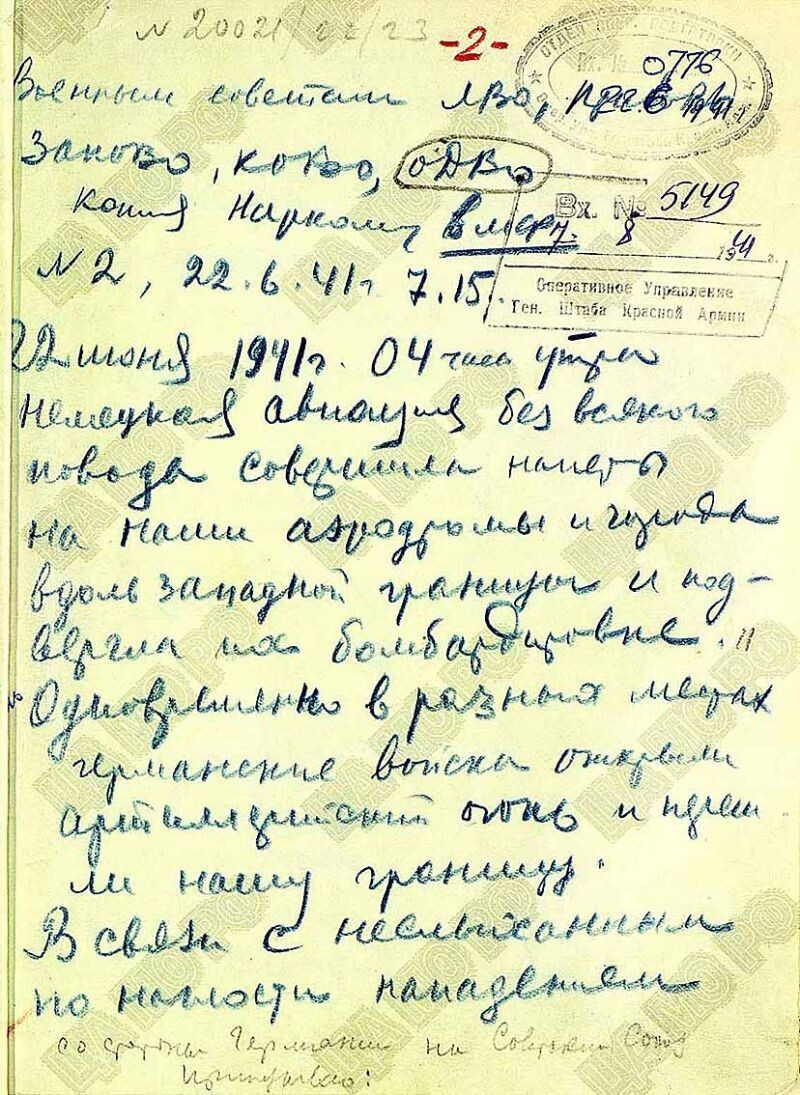 N 20021/22/23 -2-
0776
22 6 1941
Военным советам ЛВО, ПрибОВО,
ЗапОВО, КОВО, ОДВО
Вх. № 5149
7. 8 1941 г.
Оперативное Управление
Ген. Штаба Красной Армии
Копия Наркому ВМФ
N 2, 22.6.41г. 7.15.
22 июня 1941г. 04 часа утра
немецкая авиация без всякого
повода совершила налеты
на наши аэродромы и города
вдоль западной границы и под-
вергла их бомбардировке.
Одновременно в разных местах
германские войска открыли
артиллерийский огонь и переш
ли нашу границу.
В связи с неслыханным
по наглости нападением
со стороны Германии на Советский Союз
Приказываю: